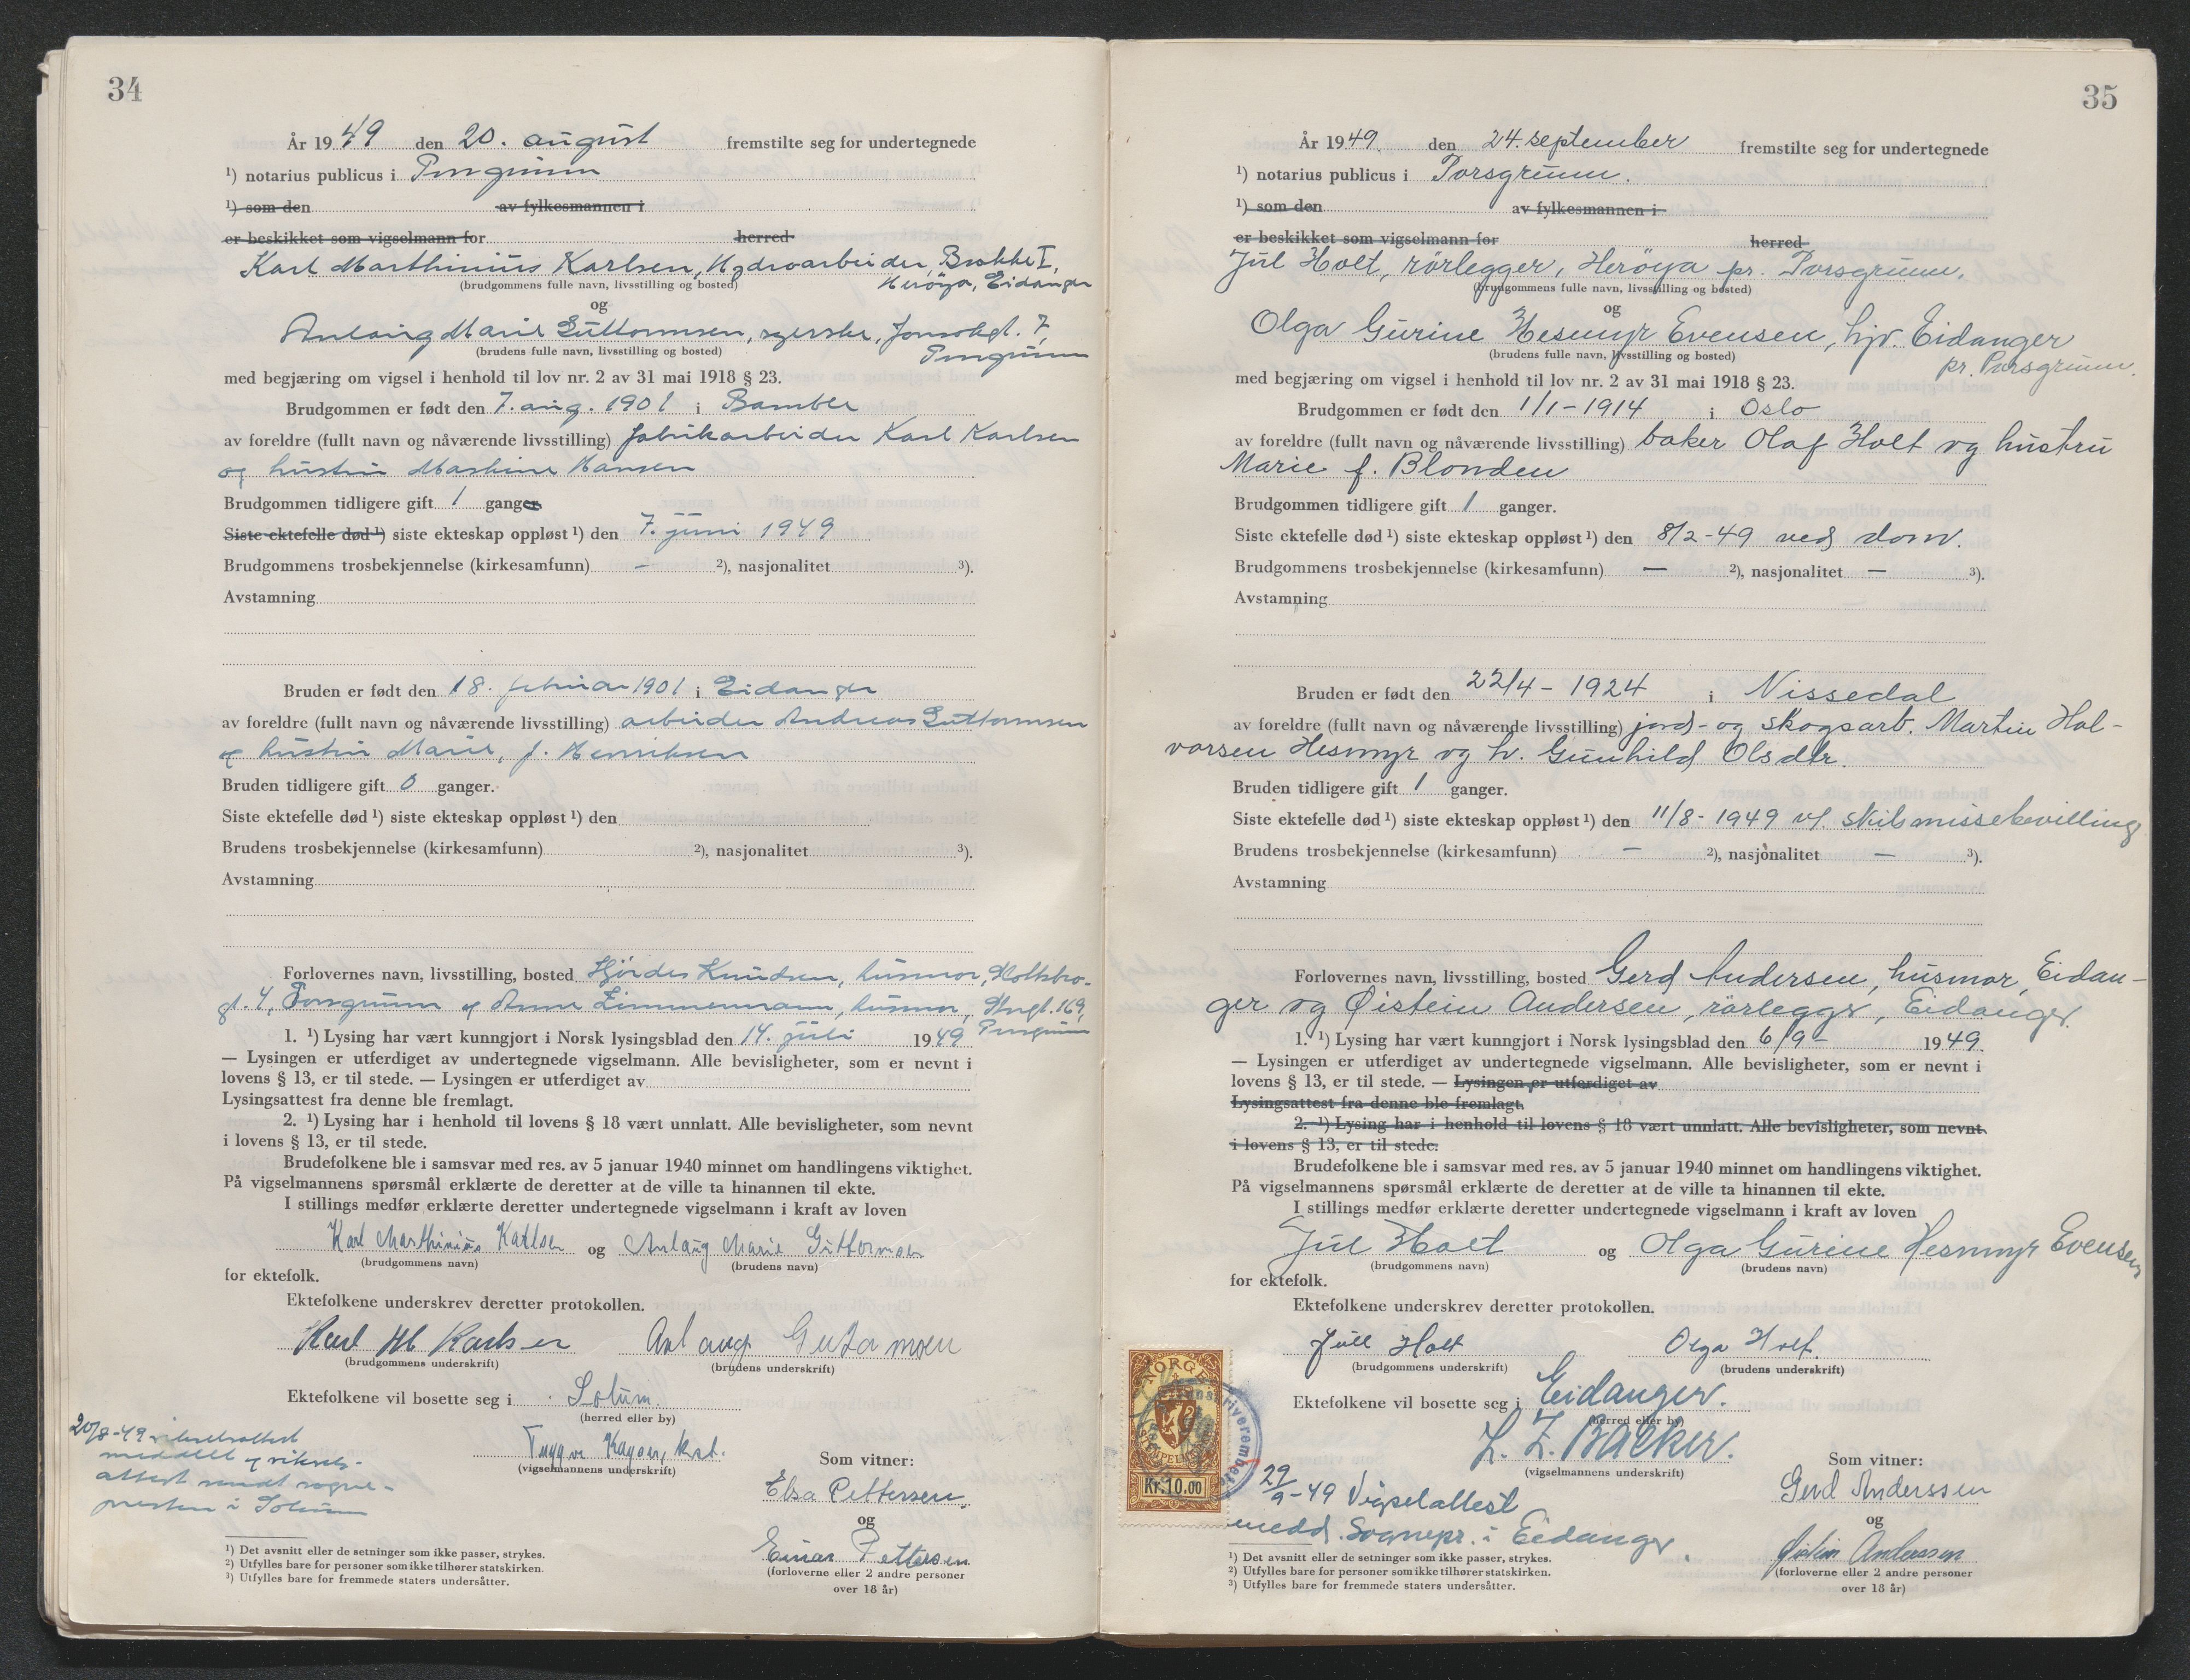 34
År 1949 den 20. august fremstilte seg for undertegnede
¹) notarius publicus i Porsgrunn
¹) som den av fylkesmannen i
er beskikket som vigselmann for herred
Karl Marthinius Karlsen, Hydroarbeider, Brekke I,
Herøya, Eidanger
(brudgommens fulle navn, livsstilling og bosted)
og
Aslaug Marie Guttormsen, syerske, 7,
Porsgrunn
(brudens fulle navn, livsstilling og bosted)
med begjæring om vigsel i henhold til lov nr. 2 av 31 mai 1918 § 23.
Brudgommen er født den 7. aug. 1901 i Bamble
av foreldre (fullt navn og nåværende livsstilling) fabrikarbeider Karl Karlsen
og hustru Maskine Hansen
Brudgommen tidligere gift 1 ganger
Siste ektefelle død ¹) siste ekteskap oppløst ¹) den 7. juni 1949
Brudgommens trosbekjennelse (kirkesamfunn) – ²), nasjonalitet ³).
Avstamning
Bruden er født den 18. februar 1901 i Eidanger
av foreldre (fullt navn og nåværende livsstilling) arbeider Andreas Guttormsen
og hustru Marie, f. Henriksen
Bruden tidligere gift 0 ganger.
Siste ektefelle død ¹) siste ekteskap oppløst ¹) den
Brudens trosbekjennelse (kirkesamfunn) ²), nasjonalitet ³).
Avstamning
Forlovernes navn, livsstilling, bosted Hjördes Knudsen, husmor, Holtebro-
gt. 4, Porsgrunn og Anne Zimmermann, husmor, Storgt. 169,
Porsgrunn
1. ¹) Lysing har vært kunngjort i Norsk lysingsblad den 14. juli 1949
— Lysingen er utferdiget av undertegnede vigselmann. Alle bevisligheter, som er nevnt i
lovens § 13, er til stede. — Lysingen er utferdiget av
Lysingsattest fra denne ble fremlagt.
2. ¹) Lysing har i henhold til lovens § 18 vært unnlatt. Alle bevisligheter, som nevnt
i lovens § 13, er til stede.
Brudefolkene ble i samsvar med res. av 5 januar 1940 minnet om handlingens viktighet.
På vigselmannens spørsmål erklærte de deretter at de ville ta hinannen til ekte.
I stillings medfør erklærte deretter undertegnede vigselmann i kraft av loven
Karl Marthinius Karlsen og Aslaug Marie Guttormsen
(brudgommens navn) (brudens navn)
for ektefolk.
Ektefolkene underskrev deretter protokollen.
Karl M Karlsen Aslaug Gutormsen
(brudgommens underskrift) (brudens underskrift)
Ektefolkene vil bosette seg i Solum.
(herred eller by)
20/8-49 vigselsattest
meddelt og vigsels-
attest sendt sogne-
presten i Solum
Trygve Kayser, kst.
(vigselmannens underskrift)
Som vitner:
Elsa Pettersen
og
Einar Pettersen
(forloverne eller 2 andre personer
over 18 år)
¹) Det avsnitt eller de setninger som ikke passer, strykes.
²) Utfylles bare for personer som ikke tilhører statskirken.
³) Utfylles bare for fremmede staters undersåtter.
35
År 1949. den 24. september fremstilte seg for undertegnede
¹) notarius publicus i Porsgrunn.
¹) som den av fylkesmannen i
er beskikket som vigselmann for herred
Jul Holt, rörlegger, Heröya pr. Porsgrunn.
(brudgommens fulle navn, livsstilling og bosted)
og
Olga Gurine Hesmyr Evensen, hjv. Eidanger
pr. Porsgrunn.
(brudens fulle navn, livsstilling og bosted)
med begjæring om vigsel i henhold til lov nr. 2 av 31 mai 1918 § 23.
Brudgommen er født den 1/1-1914 i Oslo
av foreldre (fullt navn og nåværende livsstilling) baker Olaf Holt og hustru
Marie f. Blonden
Brudgommen tidligere gift 1 ganger.
Siste ektefelle død ¹) siste ekteskap oppløst ¹) den 8/2-49 ved dom.
Brudgommens trosbekjennelse (kirkesamfunn) — ²), nasjonalitet — ³).
Avstamning
Bruden er født den 22/4-1924 i Nissedal
av foreldre (fullt navn og nåværende livsstilling) jord- og skogsarb. Martin Hal-
vorsen Hesmyr og h. Gunhild Olsdtr.
Bruden tidligere gift 1 ganger.
Siste ektefelle død ¹) siste ekteskap oppløst ¹) den 11/8-1949 v/. skilsmissebevilling
Brudens trosbekjennelse (kirkesamfunn) — ²), nasjonalitet — ³).
Avstamning
Forlovernes navn, livsstilling, bosted Gerd Andersen, husmor, Eidan-
ger og Øistein Andersen, rörlegger, Eidanger.
1. ¹) Lysing har vært kunngjort i Norsk lysingsblad den 6/9- 1949.
— Lysingen er utferdiget av undertegnede vigselmann. Alle bevisligheter, som er nevnt i
lovens § 13, er til stede. — Lysingen er utferdiget av
Lysingsattest fra denne ble fremlagt.
2. ¹) Lysing har i henhold til lovens § 18 vært unnlatt. Alle bevisligheter, som nevnt
i lovens § 13, er til stede.
Brudefolkene ble i samsvar med res. av 5 januar 1940 minnet om handlingens viktighet.
På vigselmannens spørsmål erklærte de deretter at de ville ta hinannen til ekte.
I stillings medfør erklærte deretter undertegnede vigselmann i kraft av loven
Jul Holt og Olga Gurine Hesmyr Evensen
(brudgommens navn) (brudens navn)
for ektefolk.
Ektefolkene underskrev deretter protokollen.
Jull Holt Olga Holt.
(brudgommens underskrift) (brudens underskrift)
Ektefolkene vil bosette seg i Eidanger.
(herred eller by)
L. Z. Backer.
(vigselmannens underskrift)
NORGE
STEMPELMERKE
Kr. 10.00
29/9-49 Vigselattest
medd. Sognepr. i Eidanger.
Som vitner:
Gerd Anderssen
og
Øistein Anderssen
(forloverne eller 2 andre personer
over 18 år)
¹) Det avsnitt eller de setninger som ikke passer, strykes.
²) Utfylles bare for personer som ikke tilhører statskirken.
³) Utfylles bare for fremmede staters undersåtter.